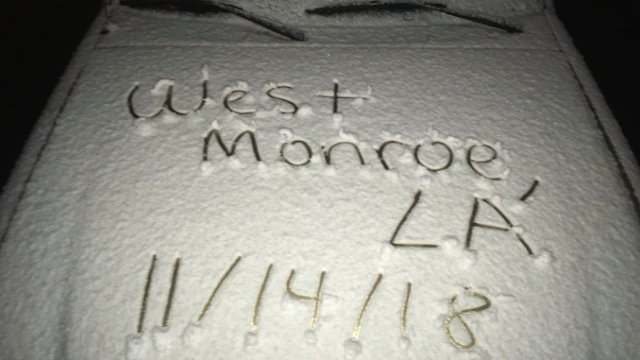 West
Monroe,
LA
11/14/18